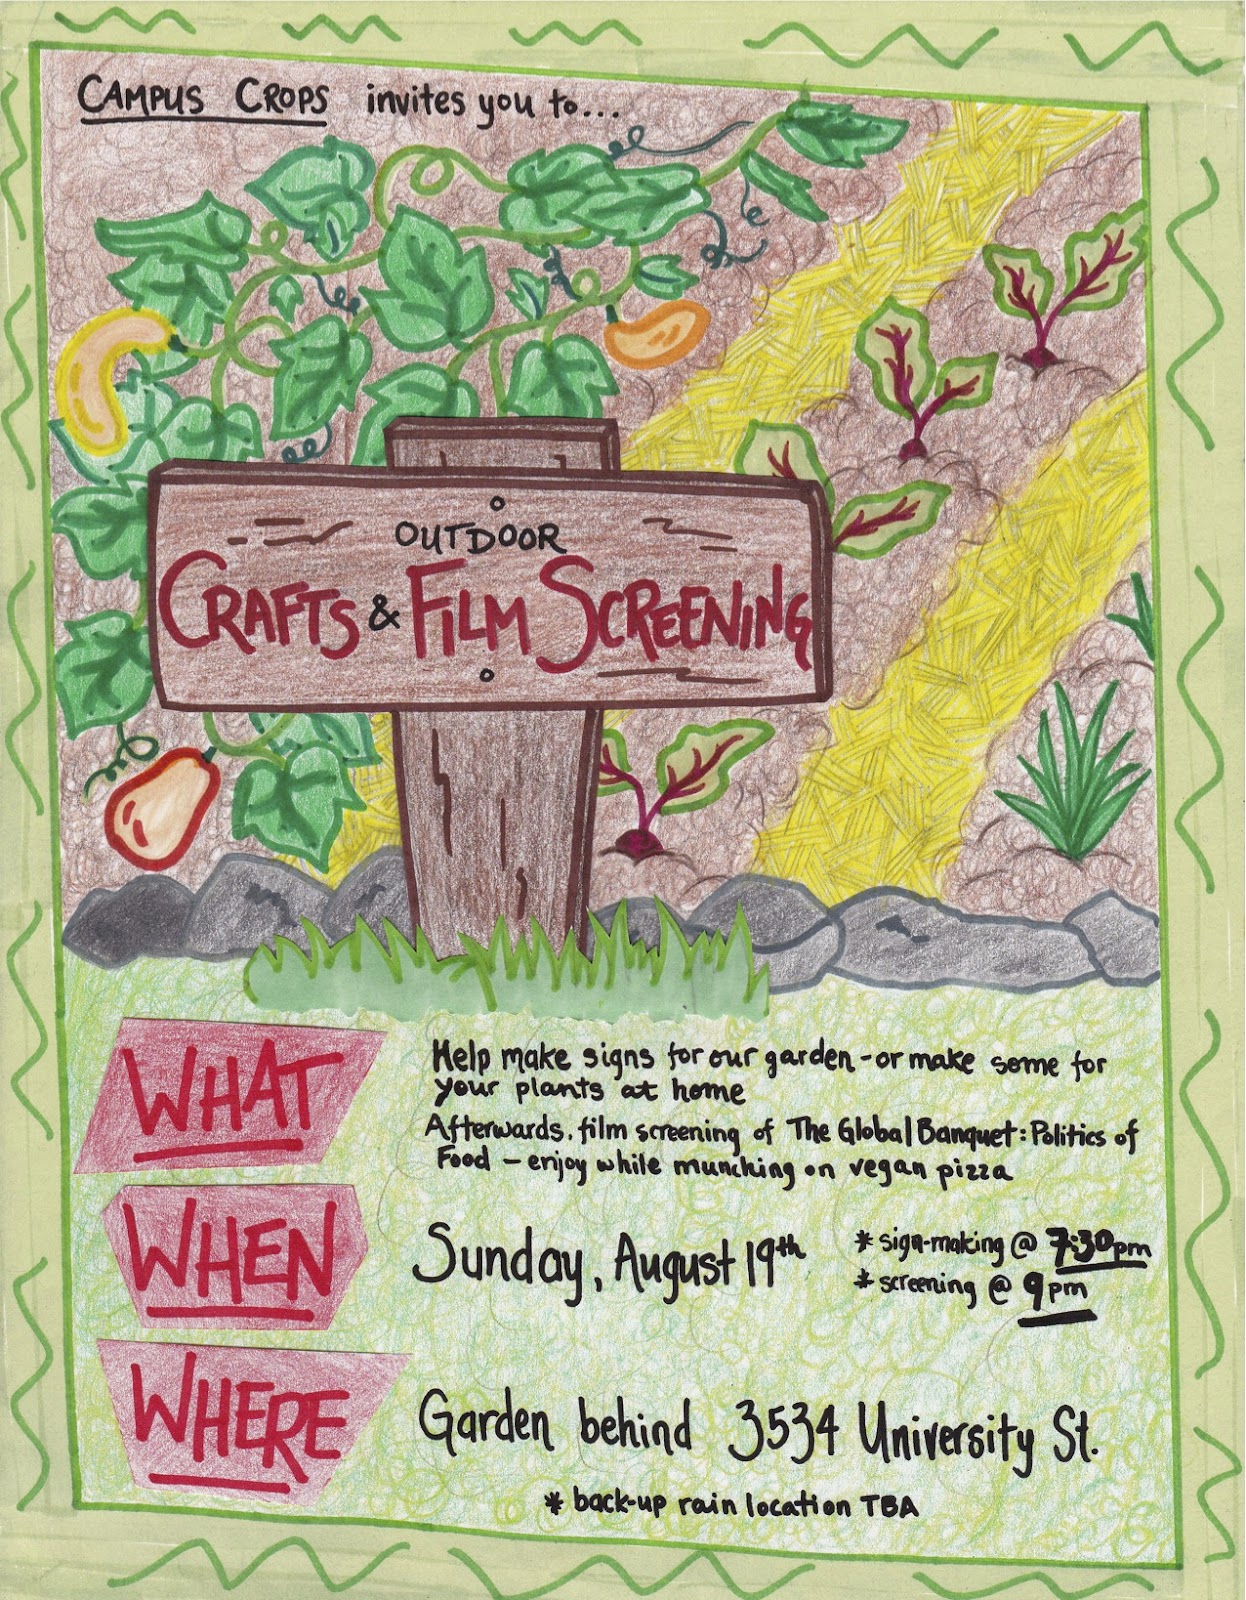 CAMPUS CROPS invites you to...
OUTDOOR
CRAFTS & FILM SCREENING
WHAT
Help make signs for our garden - or make some for
your plants at home
Afterwards, film screening of The Global Banquet: Politics of
Food - enjoy while munching on vegan pizza
WHEN
Sunday, August 19th
* sign-making @ 7:30pm
* screening @ 9pm
WHERE
Garden behind 3534 University St.
* back-up rain location TBA